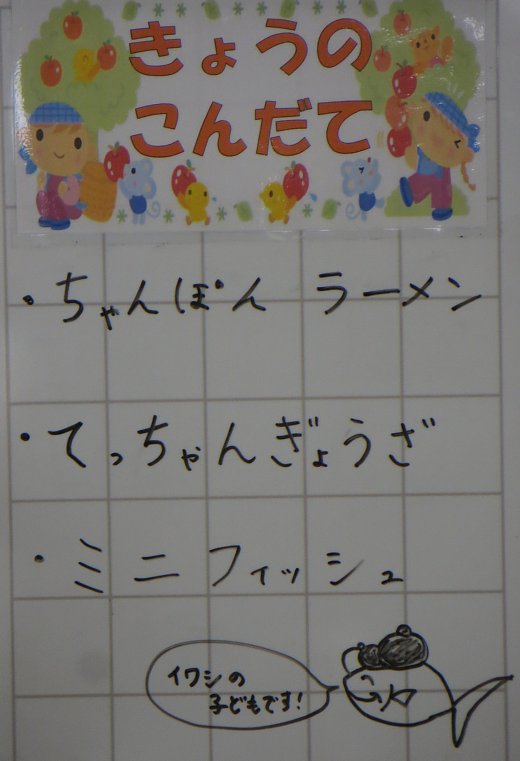 きょうの
こんだて
・ちゃんぽん ラーメン
・てっちゃんぎょうざ
・ミニフィッシュ
イワシの
子どもです!